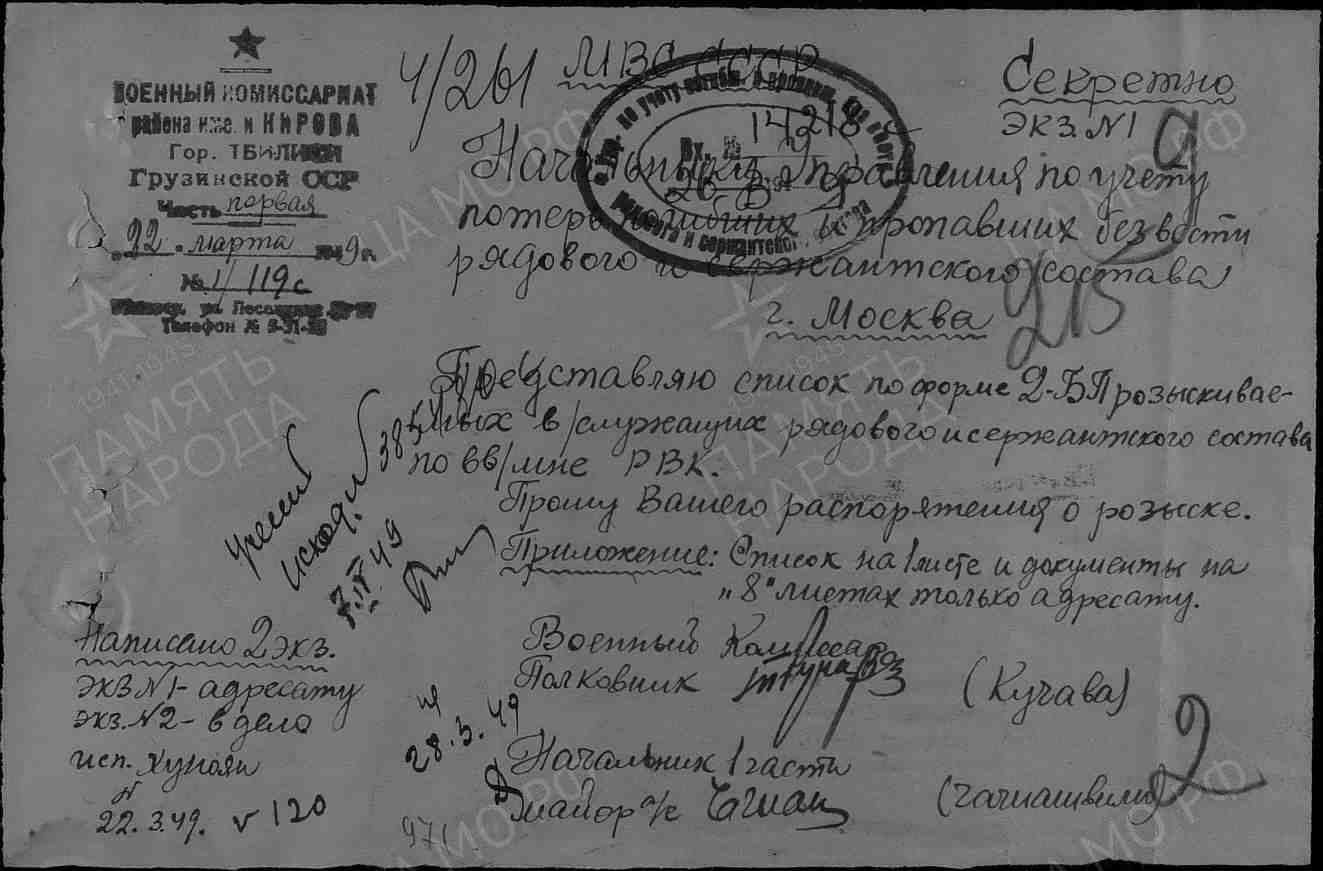 ВОЕННЫЙ КОМИССАРИАТ
района им. КИРОВА
Гор. ТБИЛИСИ
Грузинской ССР
Часть первая
"22" марта 1949 г.
№ 1/119с
Телефон №
4/261
МВС СССР
Секретно
экз. N1
14218
Вх. №
Начальнику управления по учету
потерь погибших и пропавших без вести
рядового и сержантского состава
г. Москва
Представляю список по форме 2-Б Прозыскивае-
мых в/служащих рядового и сержантского состава
по вв/мне РВК.
Прошу Вашего распоряжения о розыске.
Приложение: Список на 1 листе и документы на
"8" листах только адресату.
Военный Комиссар
Полковник
(Кучава)
Начальник 1 части
майор а/с
Написано 2 экз.
экз N1- адресату
экз. N2- в дело
исп.
22.3.49. v 120
Учтен
исход.
7.IV.49
28.3.49
971
2
ПАМЯТЬ
НАРОДА
1941-1945
ЦА МО РФ